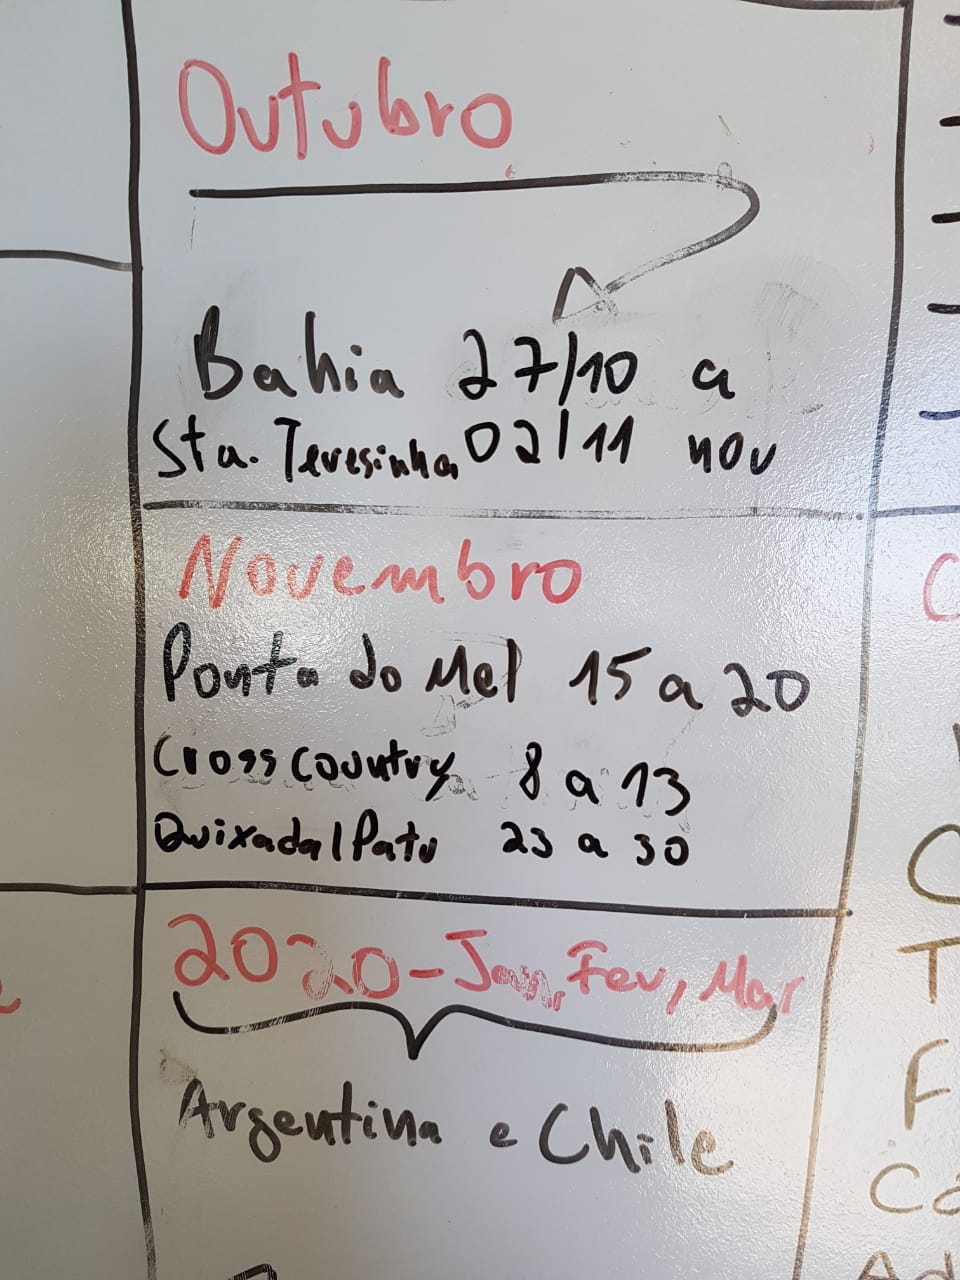 Outubro
Bahia 27/10 a
Sta. Teresinha 02/11 nov
Novembro
Ponta do Mel 15 a 20
Cross country 8 a 13
Quixadá/Patu 23 a 30
2020-Jan, Fev, Mar
Argentina e Chile